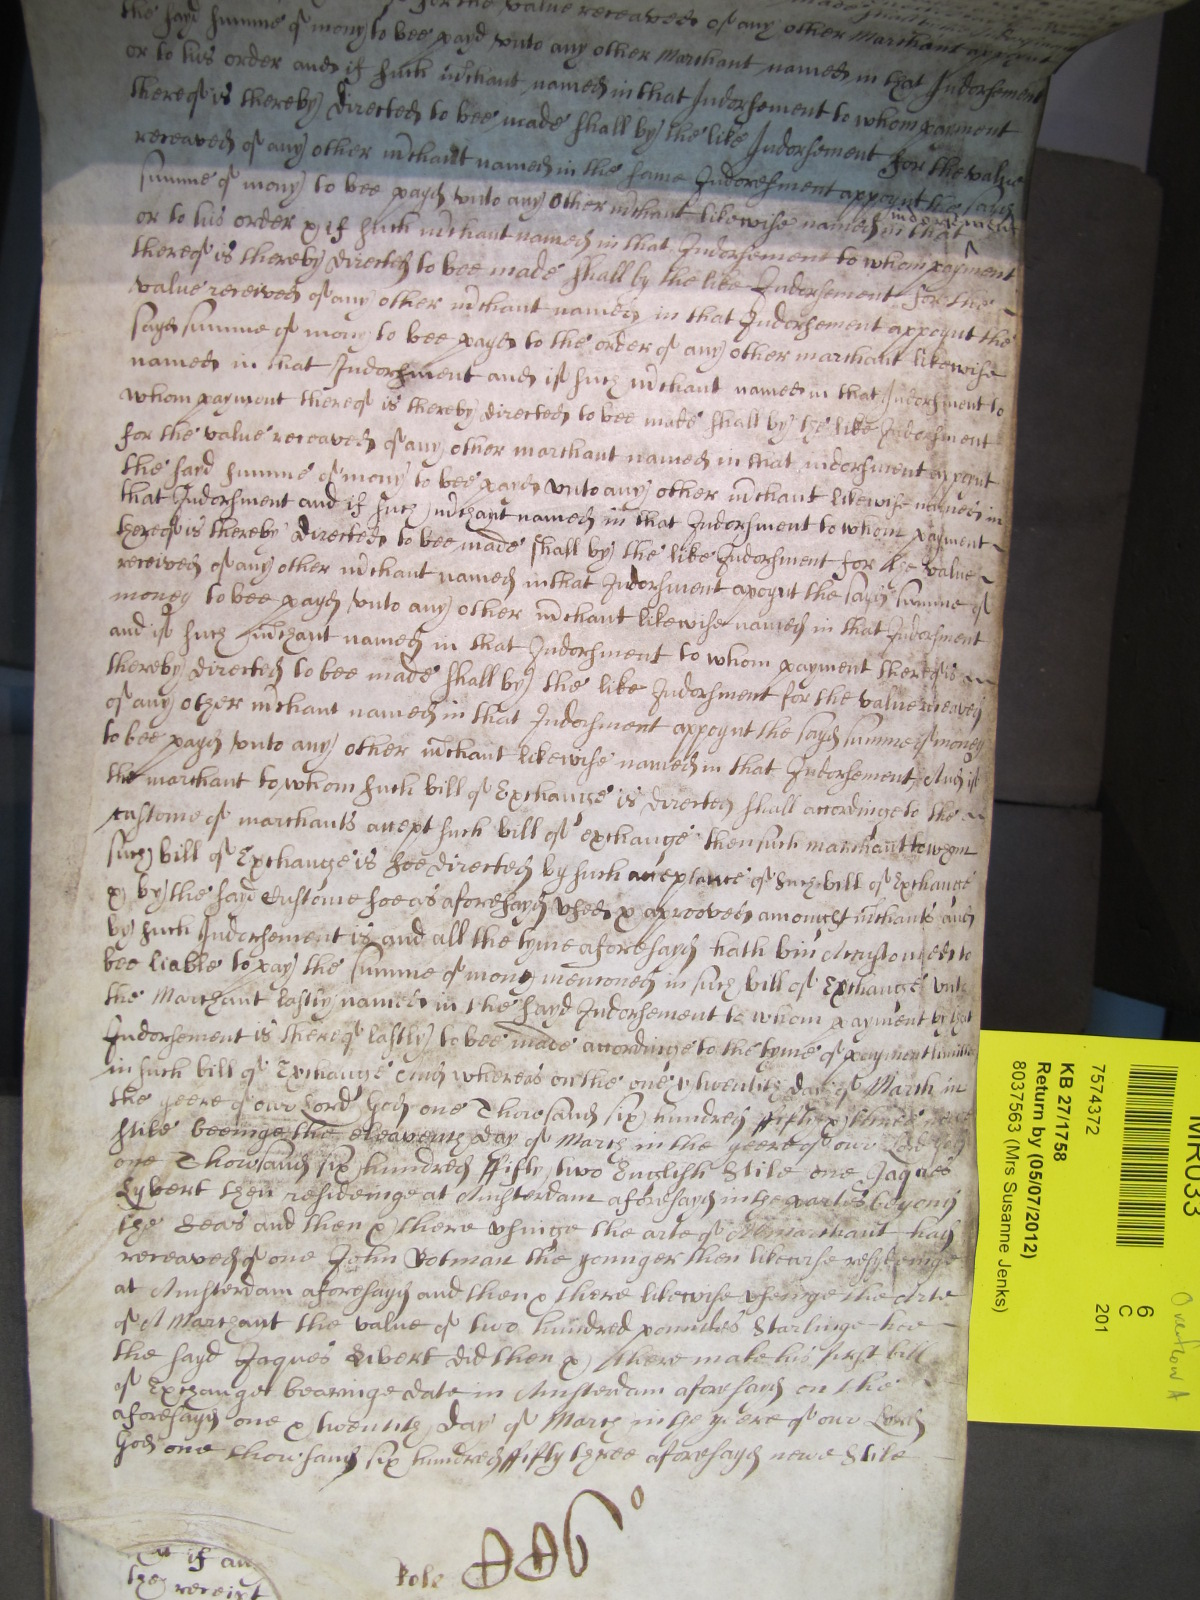 for the value receaved of any other Marchant
the sayd summe of mony to bee payd unto any other Marchant named in that Indorsement
or to his order and if such m̄chant named in that Indorsement to whom payment
thereof is thereby directed to bee made shall by the like Indorsement for the value
receaved of any other m̄chant named in the same Indorsement appoynt the sayd
summe of mony to bee payd unto any other m̄chant likewise named in that indorsement
or to his order & if such m̄chant named in that Indorsement to whom payment
thereof is thereby directed to bee made shall by the like Indorsement for the
value received of any other m̄chant named in that Indorsement appoynt the
sayd summe of mony to bee payd to the order of any other marchant likewise
named in that Indorsment and if such m̄chant named in that Indorsment to
whom payment thereof is thereby directed to bee made shall by the like Indorsment
for the value receaved of any other marchant named in that indorsment appoynt
the sayd summe of mony to bee payd unto any other m̄chant likewise named in
that Indorsment and if such m̄chant named in that Indorsment to whom payment
thereof is thereby directed to bee made shall by the like Indorsment for the value
received of any other m̄chant named in that Indorsment apoynt the sayd summe of
money to bee payd unto any other m̄chant likewise named in that Indorsment
and if such m̄chant named in that Indorsment to whom payment thereof is
thereby directed to bee made shall by the like Indorsment for the value receaved
of any other m̄chant named in that Indorsment appoynt the sayd summe of money
to bee payd unto any other m̄chant likewise named in that Indorsement And if
the marchant to whom such bill of Exchange is directed shall accordinge to the
custome of marchants accept such bill of exchange then such marchant to whom
such bill of Exchange is soe directed by such acceptance of such bill of Exchange
& by the sayd custome soe as aforesayd used & aprooved amongst m̄chants and
by such Indorsement is and all the tyme aforesayd hath bin Accustomed to
bee liable to pay the summe of mony menc̄oned in such bill of Exchange unto
the Marchant lastly named in the sayd Indorsement to whom payment by that
Indorsement is thereof lastly to bee made accordinge to the tyme of payment limitted
in such bill of Exchange And whereas on the one & twentith day of March in
the yeere of our Lord God one Thousand six hundred ffifty & three newe
stile beeinge the eleaventh day of March in the yeere of our Lord God
one Thousand six hundred ffifty two English Stile one Jaques
Lyvert then resideinge at Amsterdam aforesayd in the partes beyond
the Seas and then & there usinge the arte of A marchant had
receaved of one John Rotman the younger then likewise resydeinge
at Amsterdam aforesayd and then & there likewise useinge the Arte
of A Marchant the value of two hundred poundes Starlinge hee
the sayd Jaques Livert did then & there make his first bill
of Exchange bearinge date in Amsterdam aforesayd on the
aforesayd one & twentith day of March in the yeere of our Lord
God one thousand six hundred ffifty three aforesayd newe Stile
Rolo
if an
the receipt
MR033
7574372
KB 27/1758
Return by (05/07/2012)
8037563 (Mrs Susanne Jenks)
6
C
201
Overflow A